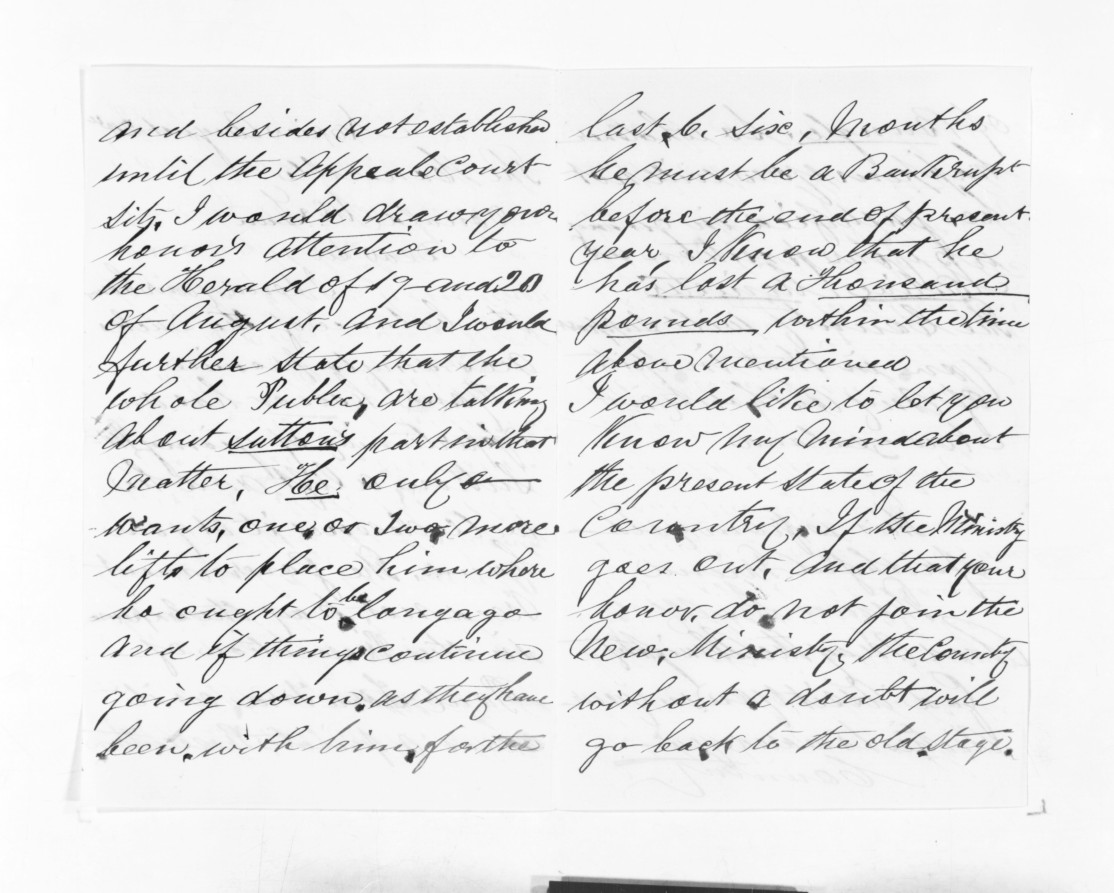 and besides not established
until the Appeale Court
sits, I would draw your
honors attention to
the Herald of 19 and 20
of August, and I would
further state that the
whole Public, are talking
about Suttons part in that
matter, He only
wants, one, or two, more
lifts to place him where
he ought to be long ago
and if things continue
going down, as they have
been, with him, for the
last, 6. six, Months
he must be a Bankrupt
before the end of present
year, I Know that he
has lost a Thousand
pounds within the time
above mentioned
I would like to let you
Know my mind about
the present state of the
Country, If the Ministry
goes out, and that your
honor, do not join the
New, Ministry, the County
without a doubt will
go back to the old stage.